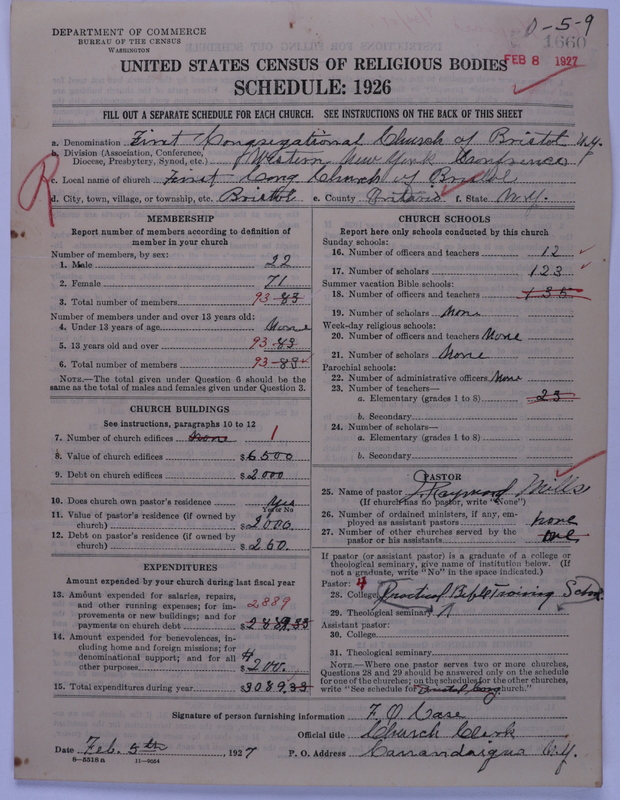 0-5-9
1660
FEB 8 1927
DEPARTMENT OF COMMERCE
BUREAU OF THE CENSUS
WASHINGTON
UNITED STATES CENSUS OF RELIGIOUS BODIES
SCHEDULE: 1926
FILL OUT A SEPARATE SCHEDULE FOR EACH CHURCH. SEE INSTRUCTIONS ON THE BACK OF THIS SHEET
a. Denomination First Congregational Church of Bristol N.Y.
b. Division (Association, Conference, Diocese, Presbytery, Synod, etc.) Western New York Conference
R
c. Local name of church First Cong Church of Bristol
d. City, town, village, or township, etc. Bristol e. County Ontario f. State N.Y.
MEMBERSHIP
Report number of members according to definition of
member in your church
Number of members, by sex:
1. Male 22
2. Female 71
3. Total number of members 93 83
Number of members under and over 13 years old:
4. Under 13 years of age None
5. 13 years old and over 93 83
6. Total number of members 93 83
NOTE.—The total given under Question 6 should be the
same as the total of males and females given under Question 3.
CHURCH BUILDINGS
See instructions, paragraphs 10 to 12
7. Number of church edifices None 1
8. Value of church edifices $6500
9. Debt on church edifices $2000
10. Does church own pastor's residence Yes
Yes or No
11. Value of pastor's residence (if owned by
church) $2000.
12. Debt on pastor's residence (if owned by
church) $250.
EXPENDITURES
Amount expended by your church during last fiscal year
13. Amount expended for salaries, repairs,
and other running expenses; for im-
provements or new buildings; and for
payments on church debt $ 2889
14. Amount expended for benevolences, in-
cluding home and foreign missions; for
denominational support; and for all
other purposes $200.
15. Total expenditures during year $3089.33
CHURCH SCHOOLS
Report here only schools conducted by this church
Sunday schools:
16. Number of officers and teachers 12
17. Number of scholars 123
Summer vacation Bible schools:
18. Number of officers and teachers 135
19. Number of scholars None
Week-day religious schools:
20. Number of officers and teachers None
21. Number of scholars None
Parochial schools:
22. Number of administrative officers None
23. Number of teachers—
a. Elementary (grades 1 to 8) 23
b. Secondary
24. Number of scholars—
a. Elementary (grades 1 to 8)
b. Secondary
PASTOR
25. Name of pastor Raymond Mills
(If church has no pastor, write "None")
26. Number of ordained ministers, if any, em-
ployed as assistant pastors None
27. Number of other churches served by the
pastor or his assistants one
If pastor (or assistant pastor) is a graduate of a college or
theological seminary, give name of institution below. (If
not a graduate, write "No" in the space indicated.)
Pastor: 4
28. College Practical Bible Training School
29. Theological seminary
Assistant pastor:
30. College
31. Theological seminary
NOTE.—Where one pastor serves two or more churches,
Questions 28 and 29 should be answered only on the schedule
for one of the churches; on the schedules for the other churches,
write "See schedule for Bristol Cong church."
Signature of person furnishing information F. O. Case
Official title Church Clerk
Date Feb. 5th, 1927 P. O. Address Canandaigua N.Y.
8-5518a 11-9054